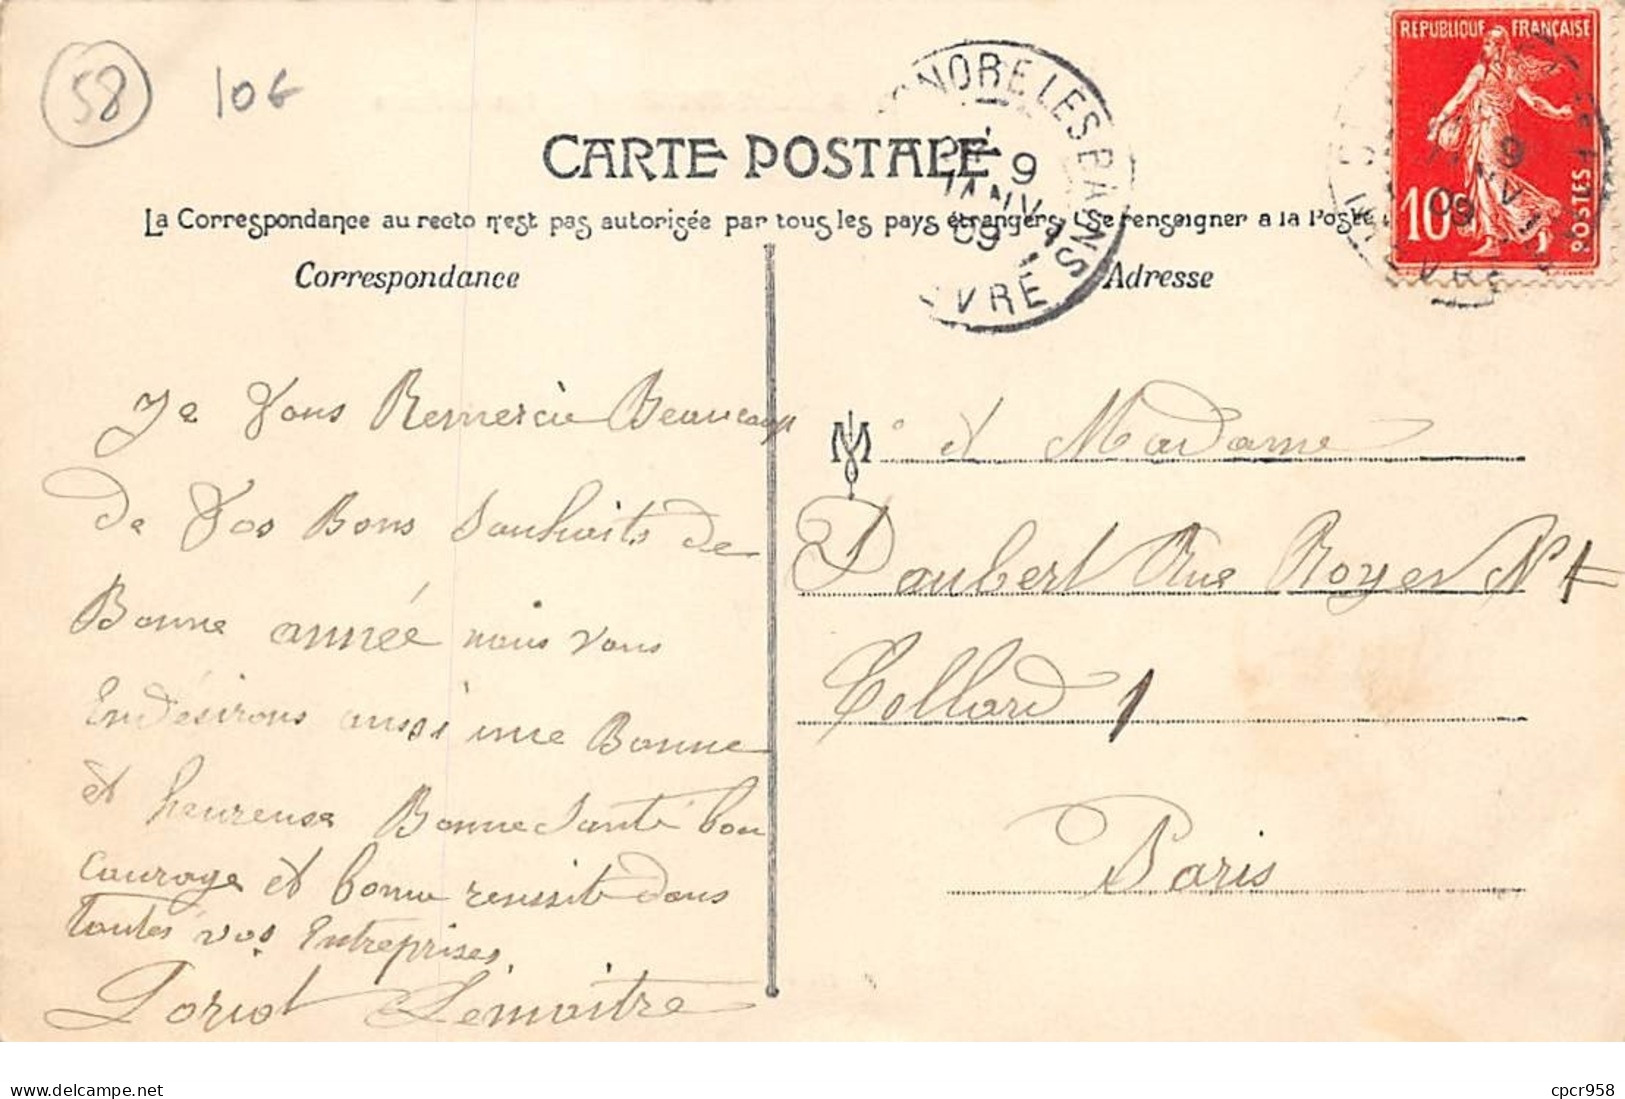 58
10€
RÉPUBLIQUE FRANÇAISE
10c
POSTES
ONORE LES BAINS
9
JANV
09
NIEVRE
CARTE POSTALE
La Correspondance au recto n'est pas autorisée par tous les pays étrangers (Se renseigner a la Poste
Correspondance
Adresse
Je Vous Remercie Beaucoup
de Vos Bons Souhaits de
Bonne année nous vous
Endésirons aussi une Bonne
et heureuse Bonne Santé bon
Courage et bonne reussite dans
toutes vos Entreprises.
Loriot Lemaitre
M et Madame
Daubert Rue Royer N
Collard 1
Paris
delcampe.net
cpcr958